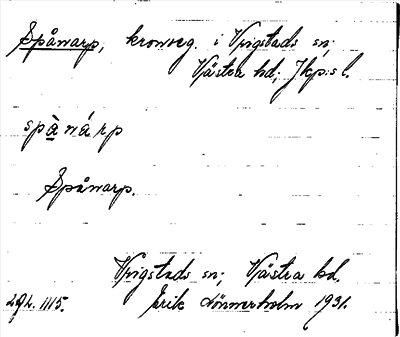 Spånarp, kronoeg. i Vrigstads sn;
Västra hd; Jkp:s l.
spànárp
Spånarp.
Vrigstads sn; Västra hd.
Erik Lönnerholm 1931.